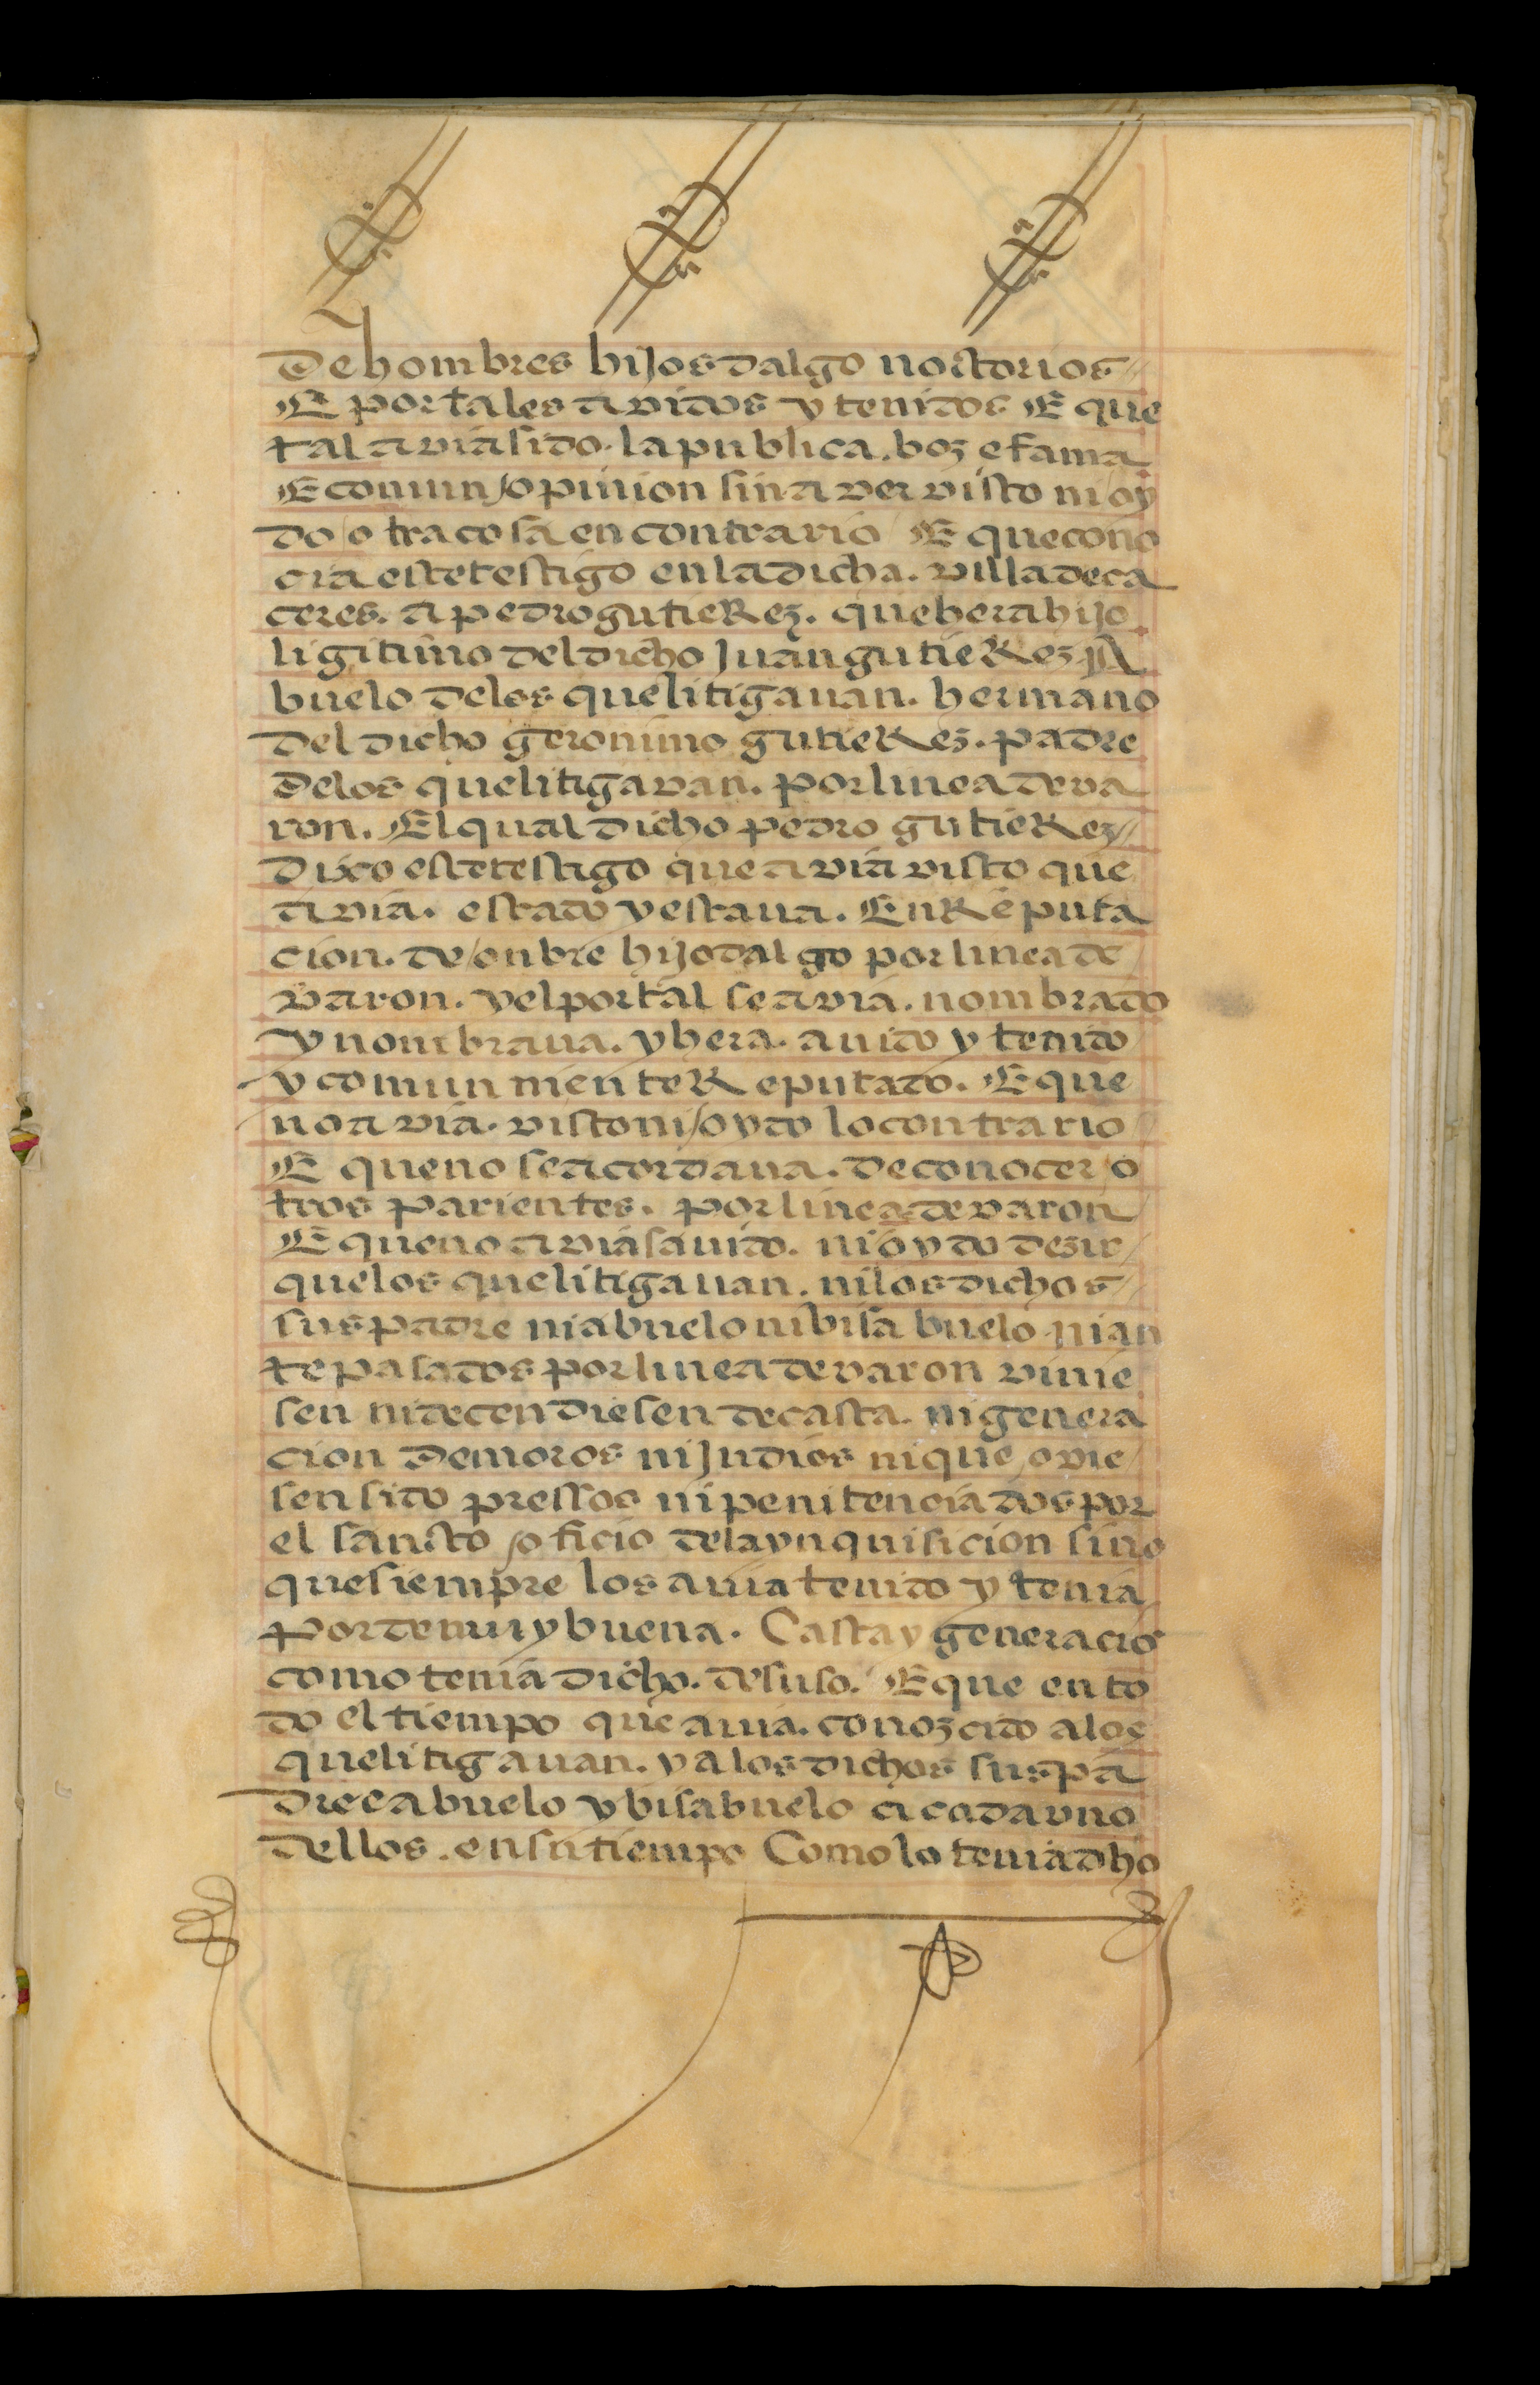 De hombres hijosdalgo noctorios
E por tales avidos y tenidos E que
tal avia sido. la publica. boz e fama
E comun opinion sin aver visto ni oy
do otra cosa en contrario E que cono
cia este testigo en la dicha. villa de ca
ceres. a pedro gutieRez. que hera hijo
ligitimo del dicho Juan gutieRez A
buelo de los que litigauan. hermano
del dicho geronimo gutieRez. padre
de los que litigavan. por linea de va
ron. El qual dicho pedro gutieRez
Dixo este testigo que avia visto que
avia. estado y estaua. En Reputa
cion. de onbre hijodalgo por linea de
varon. y el por tal se avia. nombrado
y nombraua. y hera. auido y tenido
y comunmente Reputado. E que
no avia. visto ni oydo lo contrario
E que no se acordaua. de conocer o
tros parientes. por linea de varon
E que no avia sauido. ni oydo dezir
que los que litigauan. ni los dichos
sus padre ni abuelo ni bisabuelo ni an
tepasados por linea de varon vinie
sen ni decendiesen de casta. ni genera
cion De moros ni Judios ni que ovie
sen sido pressos ni penitenciados por
el sancto oficio de la ynquisicion sino
que siempre los auia tenido y tenia
Por de muy buena. Casta y generacio
como tenia dicho. de suso. E que en to
do el tiempo que auia. conozcido a los
que litigauan. y a los dichos sus pa
dre e abuelo y bisabuelo a cada uno
dellos. en su tiempo Como lo tenia dho